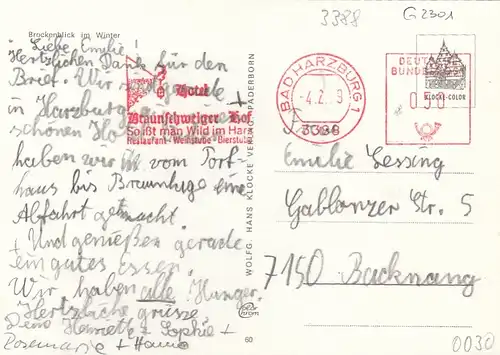 Brockenblick im Winter
Liebe Emilie,
Herzlichen Dank für den
Brief. Wir sind gerade
in Harzburg
schönen
haben wir vom Torf-
haus bis Braunlage eine
Abfahrt gemacht
+ Und genießen gerade
ein gutes Essen.
Wir haben alle Hunger.
Herzliche Grüsse,
Deine Henriette + Sophie +
Rosemarie + Hanno
Hotel
Braunschweiger Hof
So ißt man Wild im Harz
Restaurant - Weinstube - Bierstube
WOLFG. HANS KLOCKE VERLAG PADERBORN
60
3388
G 2301
BAD HARZBURG 1
3388
DEUTSCHE
BUNDESPOST
KLOCKE-COLOR
Emilie Lessing
Gablonzer Str. 5
7150 Backnang
0030